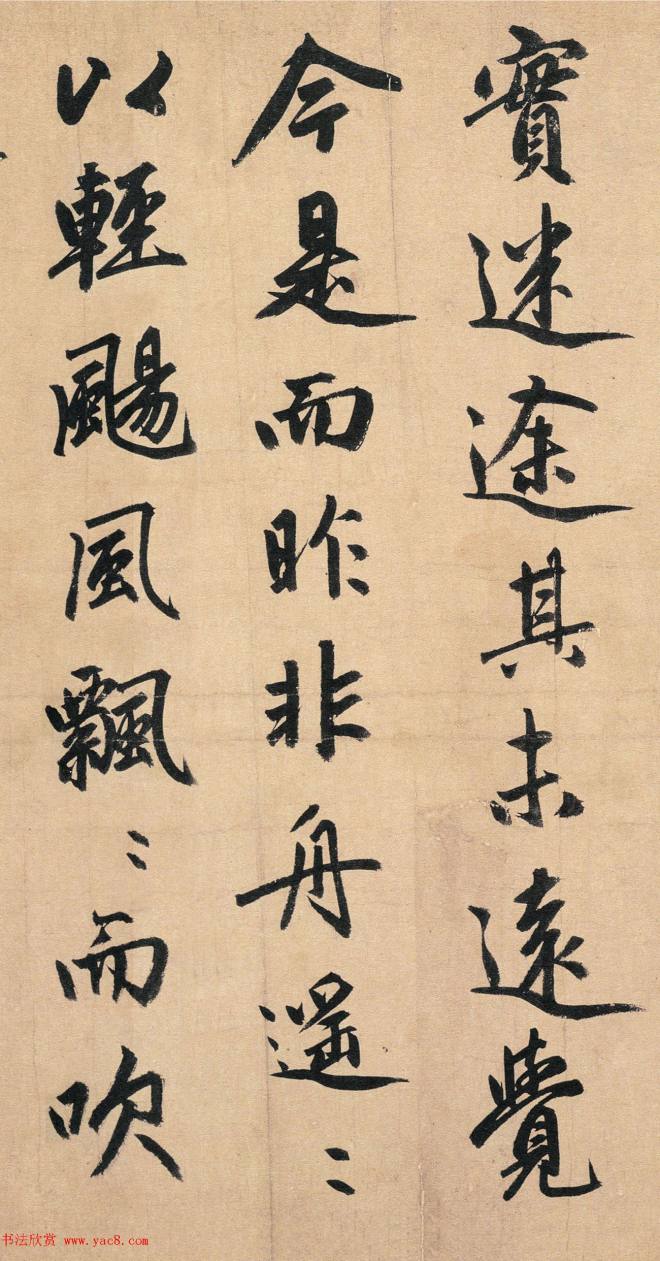 實迷途其未遠覺
今是而昨非舟遥〻
以輕颺風飄〻而吹
书法欣赏 www.yac8.com